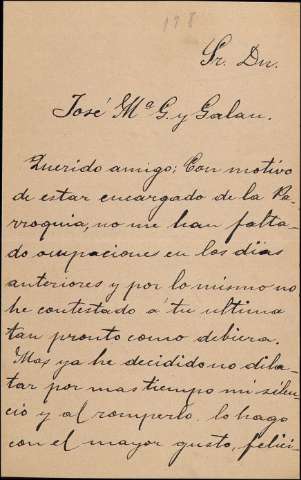 198
Sr. Dn.
José Mª G. y Galan.
Querido amigo: Con motivo
de estar encargado de la Pa-
rroquia, no me han falta-
do ocupaciones en los dias
anteriores y por lo mismo no
he contestado á tu ultima
tan pronto como debiera.
Mas ya he decidido no dila-
tar por mas tiempo mi silen-
cio y al romperlo lo hago
con el mayor gusto, felici-